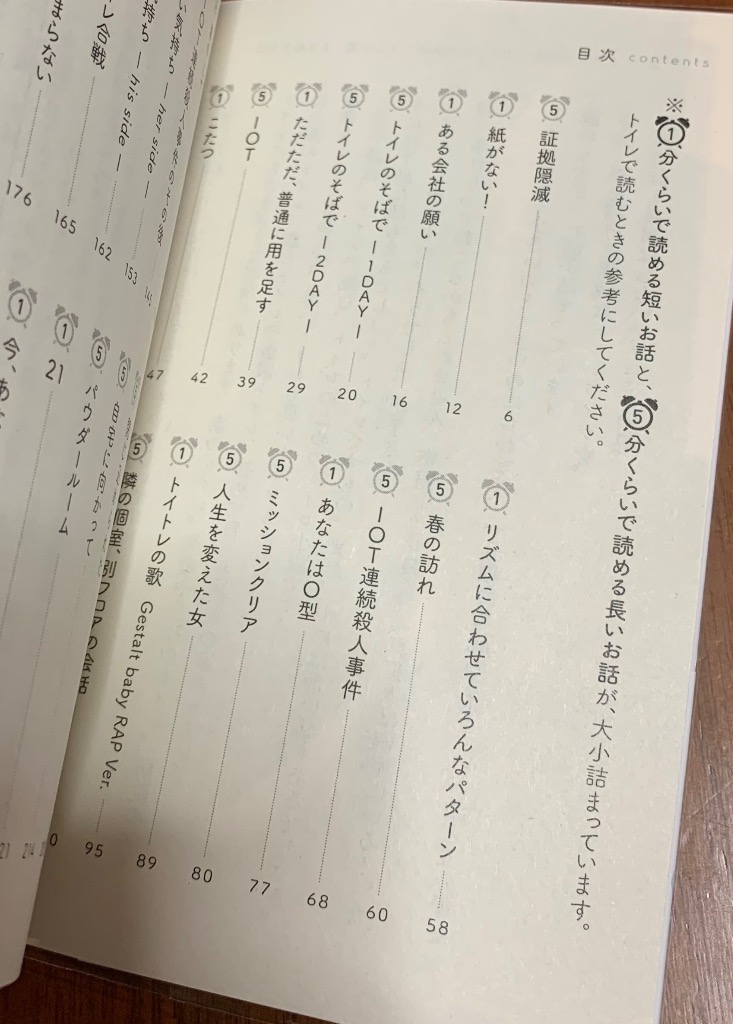 目次 contents
※①分くらいで読める短いお話と、⑤分くらいで読める長いお話が、大小詰まっています。
トイレで読むときの参考にしてください。
⑤ 証拠隠滅 6
① 紙がない！ 12
① ある会社の願い 16
⑤ トイレのそばで ー1DAYー 20
⑤ トイレのそばで ー2DAYー 29
① ただただ、普通に用を足す 39
⑤ IOT 42
① こたつ 47
① リズムに合わせていろんなパターン 58
⑤ 春の訪れ 60
⑤ IOT連続殺人事件 68
① あなたは○型 77
⑤ ミッションクリア 80
⑤ 人生を変えた女 89
① トイトレの歌 Gestalt baby RAP Ver. 95
⑤ 隣の個室、別フロアの会話
持ち ― her side ― 153
持ち ― his side ― 162
レ合戦 165
まらない 176
⑤ に向かって
⑤ パウダールーム
① 21
① 今、あ